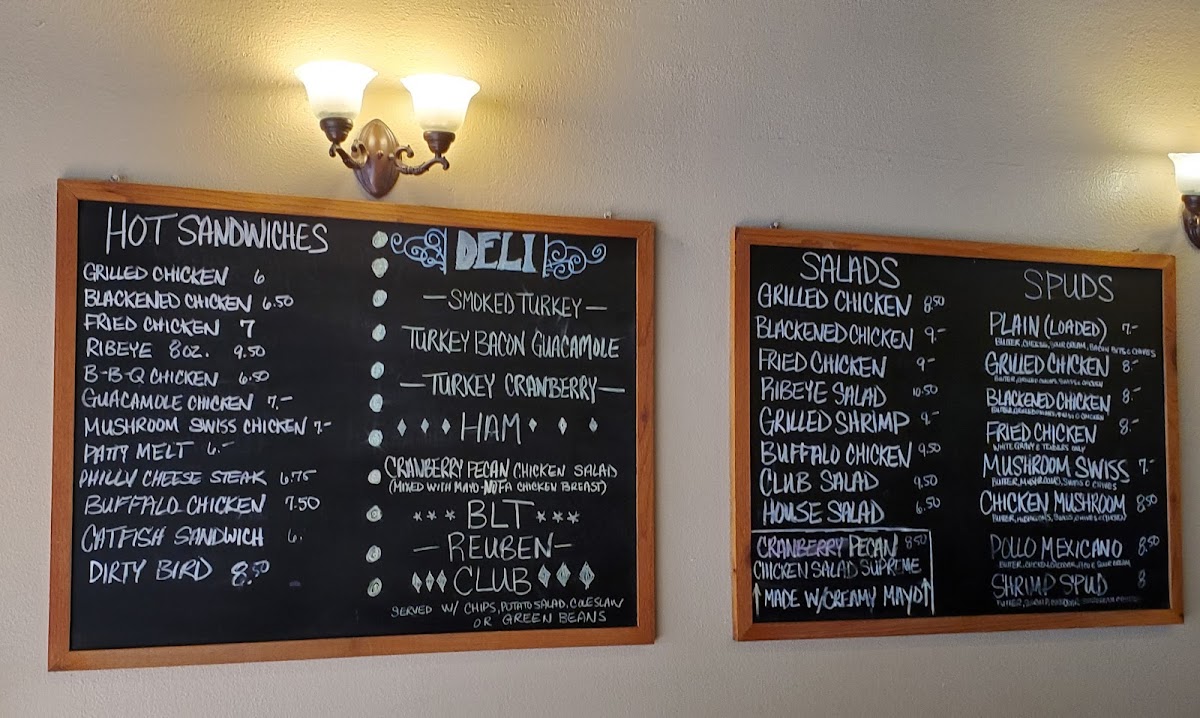 HOT SANDWICHES
GRILLED CHICKEN 6
BLACKENED CHICKEN 6.50
FRIED CHICKEN 7
RIBEYE 8 OZ. 9.50
B-B-Q CHICKEN 6.50
GUACAMOLE CHICKEN 7.-
MUSHROOM SWISS CHICKEN 7-
PATTY MELT 6.-
PHILLY CHEESE STEAK 6.75
BUFFALO CHICKEN 7.50
CATFISH SANDWICH 6.
DIRTY BIRD 8.50
DELI
—SMOKED TURKEY—
TURKEY BACON GUACAMOLE
—TURKEY CRANBERRY—
HAM
CRANBERRY PECAN CHICKEN SALAD
(MIXED WITH MAYO-NOT A CHICKEN BREAST)
*** BLT ***
—REUBEN—
CLUB
SERVED W/ CHIPS, POTATO SALAD, COLESLAW
OR GREEN BEANS
SALADS
GRILLED CHICKEN 8.50
BLACKENED CHICKEN 9-
FRIED CHICKEN 9-
RIBEYE SALAD 10.50
GRILLED SHRIMP
BUFFALO CHICKEN 9.50
CLUB SALAD 9.50
HOUSE SALAD 6.50
CRANBERRY PECAN 8.50
CHICKEN SALAD SUPREME
↑ MADE W/CREAMY MAYO ↑
SPUDS
PLAIN (LOADED) 7.-
BUTTER, CHEESE, SOUR CREAM, BACON BITS & CHIVES
GRILLED CHICKEN 8.-
BLACKENED CHICKEN 8.-
FRIED CHICKEN 8.-
WHITE GRAVY & TENDERS ONLY
MUSHROOM SWISS 7.-
BUTTER, MUSHROOMS, SWISS & CHIVES
CHICKEN MUSHROOM 8.50
BUTTER, MUSHROOMS, SWISS, CHIVES & CHICKEN
POLLO MEXICANO 8.50
SHRIMP SPUD 8